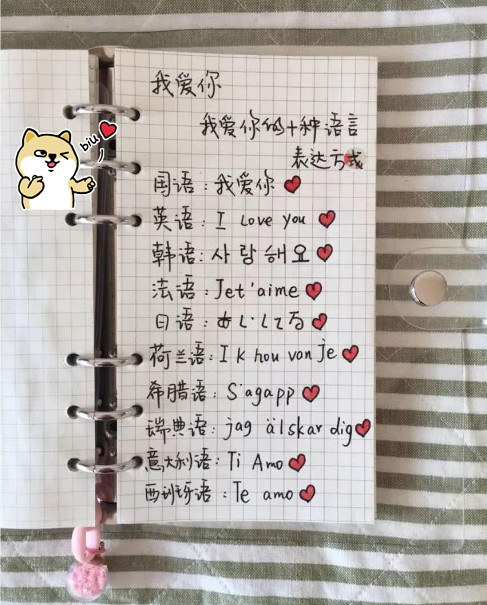 我爱你
我爱你的十种语言
表达方式
国语：我爱你
英语：I Love you
韩语：사랑해요
法语：Jet'aime
日语：あいしてる
荷兰语：Ik hou van je
希腊语：S'agapp
瑞典语：jag älskar dig
意大利语：Ti Amo
西班牙语：Te amo
biu